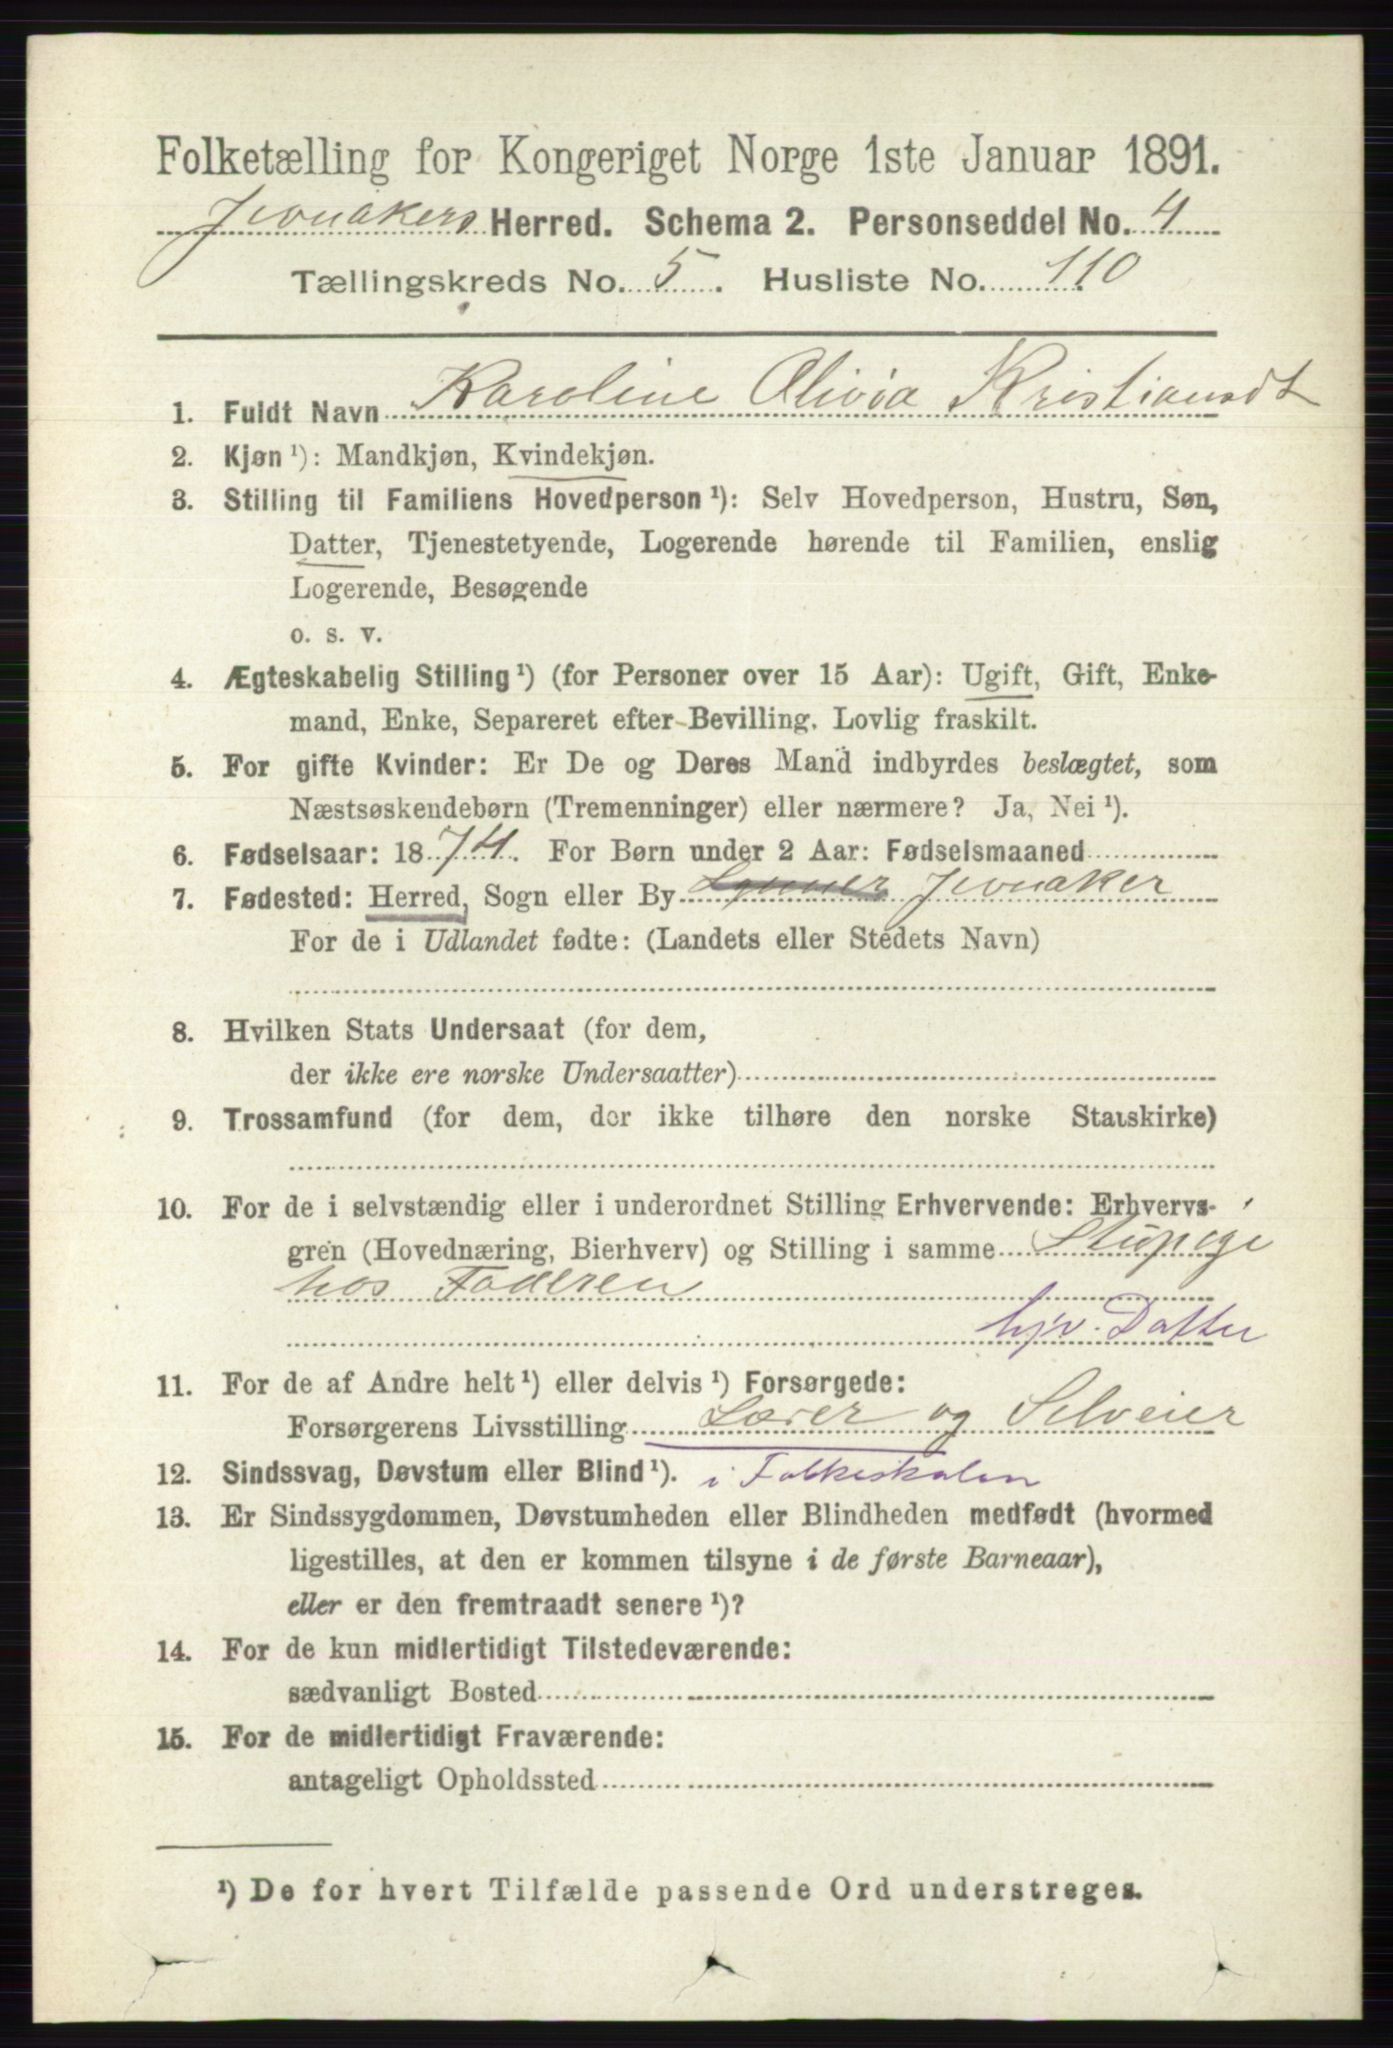 Folketælling for Kongeriget Norge 1ste Januar 1891.
Jevnakers Herred. Schema 2. Personseddel No. 4
Tællingskreds No. 5. Husliste No. 110
1. Fuldt Navn Karoline Olivia Kristiansdt
2. Kjøn ¹): Mandkjøn, Kvindekjøn.
3. Stilling til Familiens Hovedperson ¹): Selv Hovedperson, Hustru, Søn,
Datter, Tjenestetyende, Logerende hørende til Familien, enslig
Logerende, Besøgende
o. s. v.
4. Ægteskabelig Stilling ¹) (for Personer over 15 Aar): Ugift, Gift, Enke-
mand, Enke, Separeret efter Bevilling. Lovlig fraskilt.
5. For gifte Kvinder: Er De og Deres Mand indbyrdes beslægtet, som
Næstsøskendebørn (Tremenninger) eller nærmere? Ja, Nei ¹).
6. Fødselsaar: 1874. For Børn under 2 Aar: Fødselsmaaned
7. Fødested: Herred, Sogn eller By Lunner Jevnaker
For de i Udlandet fødte: (Landets eller Stedets Navn)
8. Hvilken Stats Undersaat (for dem,
der ikke ere norske Undersaatter)
9. Trossamfund (for dem, der ikke tilhøre den norske Statskirke)
10. For de i selvstændig eller i underordnet Stilling Erhvervende: Erhvervs-
gren (Hovednæring, Bierhverv) og Stilling i samme Stupige
hos Faderen
hjv. Datter
11. For de af Andre helt ¹) eller delvis ¹) Forsørgede:
Forsørgerens Livsstilling Lærer og Selveier
12. Sindssvag, Døvstum eller Blind ¹). i Folkeskolen
13. Er Sindssygdommen, Døvstumheden eller Blindheden medfødt (hvormed
ligestilles, at den er kommen tilsyne i de første Barneaar),
eller er den fremtraadt senere ¹)?
14. For de kun midlertidigt Tilstedeværende:
sædvanligt Bosted
15. For de midlertidigt Fraværende:
antageligt Opholdssted
¹) De for hvert Tilfælde passende Ord understreges.